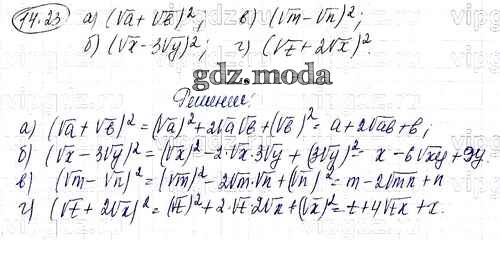 14.23 а) (√a + √b)²; в) (√m - √n)²;
б) (√x - 3√y)²; г) (√z + 2√x)².
gdz.moda
Решение:
а) (√a + √b)² = (√a)² + 2√a√b + (√b)² = a + 2√ab + b;
б) (√x - 3√y)² = (√x)² - 2·√x·3√y + (3√y)² = x - 6√xy + 9y.
в) (√m - √n)² = (√m)² - 2√m·√n + (√n)² = m - 2√mn + n
г) (√z + 2√x)² = (√z)² + 2·√z·2√x + (√x)² = z + 4√zx + x.